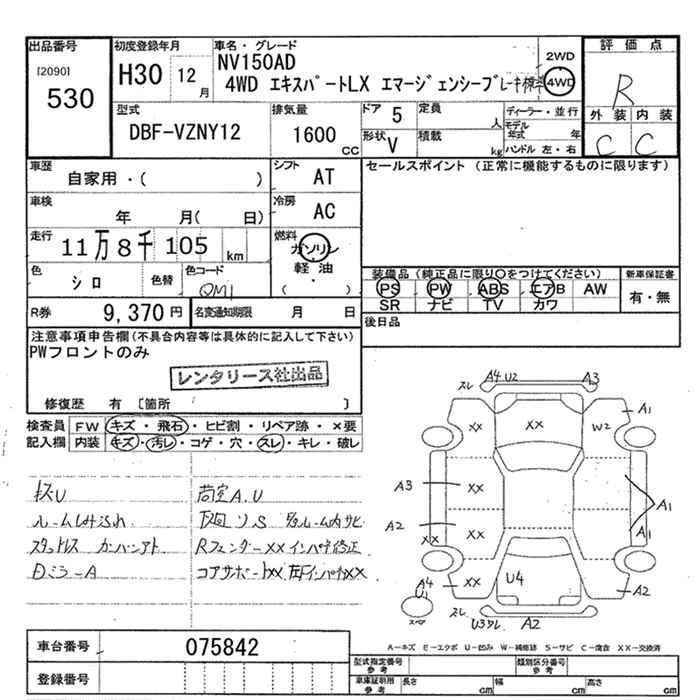 出品番号
[2090]
530
初度登録年月
H30 12月
車名・グレード
NV150AD
4WD エキスパートLX エマージェンシーブレーキ標準
2WD
4WD
評価点
R
外装 内装
C C
型式
DBF-VZNY12
排気量
1600
cc
ドア 5
形状 V
定員 人
積載 kg
ディーラー・並行
モデル年式 年
ハンドル 左・右
車歴
自家用・( )
シフト AT
車検
年 月( 日)
冷房 AC
走行
11万8千105km
燃料
ガソリン
軽油
( )
色
シロ
色替
色コード
QM1
R券 9,370円
名変通知期限 月 日
セールスポイント(正常に機能するものに限ります)
装備品(純正品に限り○をつけてください)
PS PW ABS エアB AW
SR ナビ TV カワ
新車保証書
有・無
後日品
注意事項申告欄(不具合内容等は具体的に記入して下さい)
PWフロントのみ
レンタリース社出品
修復歴 有 [箇所 ]
検査員記入欄
FW キズ・飛石・ヒビ割・リペア跡・×要
内装 キズ・汚レ・コゲ・穴・スレ・キレ・破レ
ルームしみ汚れ
スタットレス
Dミラ-A
荷室A.U
Rフェンダーxxインパネ修正
A4 U2 A3
スレ
A1
XX XX W2
A3 XX
A2 XX XX
A1
A1
A4
U1
XX U4 A2
スペア
スレ
A2
A-キズ E-エクボ U-凹み W-補修跡 S-サビ C-腐食 XX-交換済
車台番号 075842
登録番号
型式指定番号 参考
類別区分番号 参考
車庫証明用 参考
長さ cm
幅 cm
高さ cm